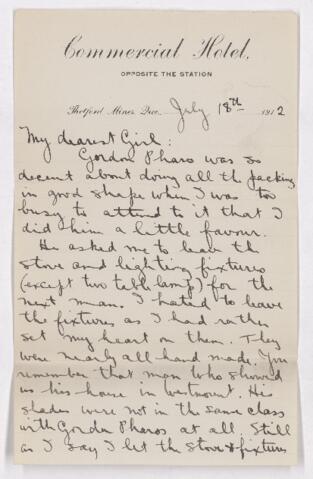 Commercial Hotel,
OPPOSITE THE STATION
Thetford Mines, Que. July 18th 1912
My dearest Girl:
Gordon Pharo was so
decent about doing all the packing
in good shape when I was too
busy to attend to it that I
did him a little favour.
He asked me to leave the
stove and lighting fixtures
(except two table lamps) for the
next man. I hated to leave
the fixtures as I had rather
set my heart on them. They
were nearly all hand made. You
remember that man who showed
us his house in Westmount. His
shades were not in the same class
with Gordon Pharos at all. Still
as I say I let the stove & fixtures